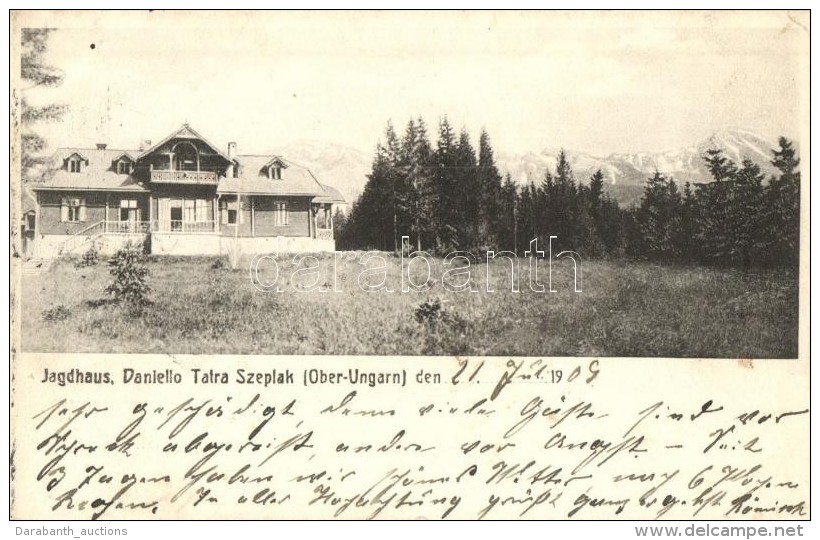 darabanth
Jagdhaus, Daniello Tatra Szeplak (Ober-Ungarn) den 21. Jul. 1908
sehr geschädigt, denn viele Gäste sind vor
Schreck abgereist, andere vor Angst – Seit
3 Tagen haben wir schönes Wetter nach 6 Wochen
Regen. In aller Hochachtung grüßt ganz ergebst
Darabanth_auctions
http://www.delcampe.net